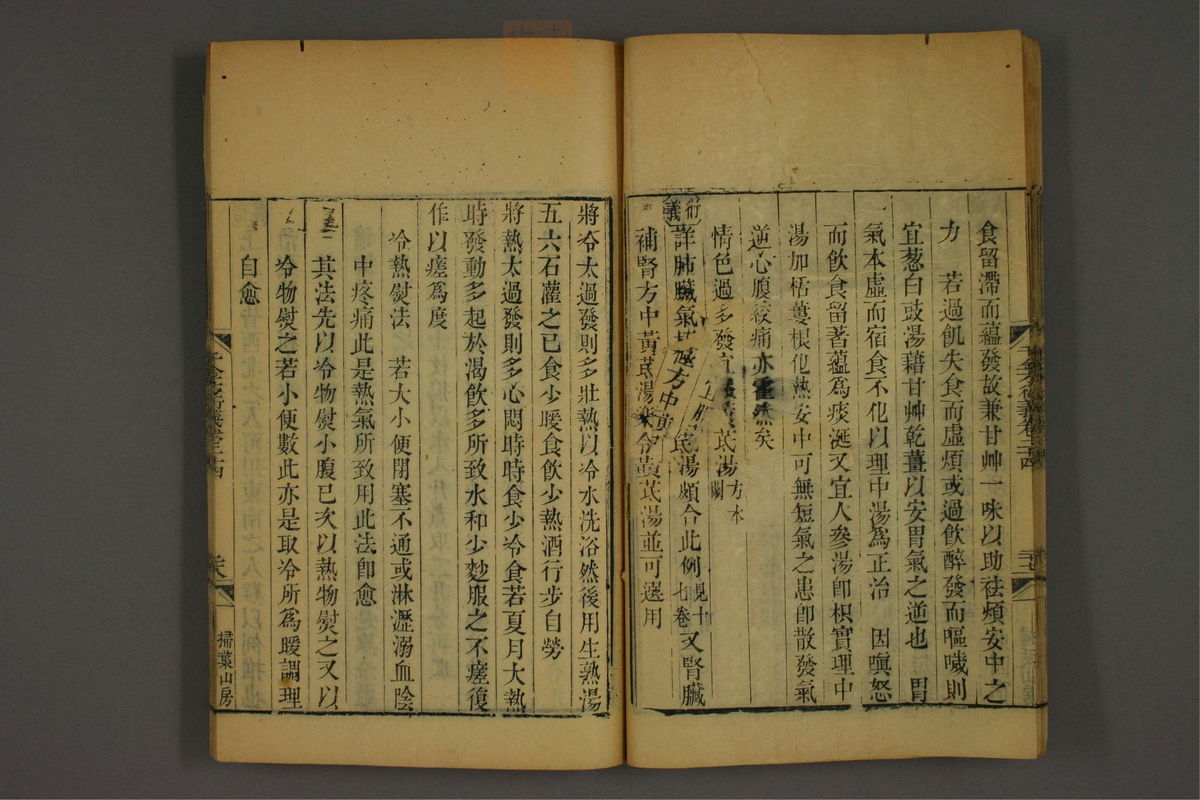 食留滯而蘊發故兼甘艸一味以助祛煩安中之
力　若過飢失食而虛煩或過飲醉發而嘔噦則
宜葱白豉湯藉甘艸乾薑以安胃氣之逆也　胃
氣本虛而宿食不化以理中湯為正治　因嗔怒
而飲食留著蘊為痰涎又宜人參湯卽枳實理中
湯加栝蔞根化熱安中可無短氣之患卽散發氣
逆心腹絞痛亦霍然矣
情色過多發宜黃芪湯方本闕
衍義
詳肺臟氣極方中黃芪湯頗合此例見十七卷又腎臟
補腎方中黃芪湯樂令黃芪湯並可選用
將冷太過發則多壯熱以冷水洗浴然後用生熟湯
五六石灌之已食少暖食飲少熱酒行步自勞
將熱太過發則多心悶時時食少冷食若夏月大熱
時發動多起於渴飲多所致水和少麨服之不瘥復
作以瘥為度
冷熱熨法　若大小便閉塞不通或淋瀝溺血陰
中疼痛此是熱氣所致用此法卽愈
其法先以冷物熨小腹已次以熱物熨之又以
冷物熨之若小便數此亦是取冷所為暖調理
自愈
掃葉山房